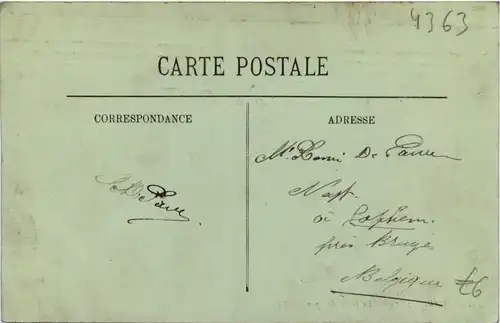 4363
CARTE POSTALE
CORRESPONDANCE
ADRESSE
Mr. Henri De
à Lophem
près Bruge
Belgique
£6